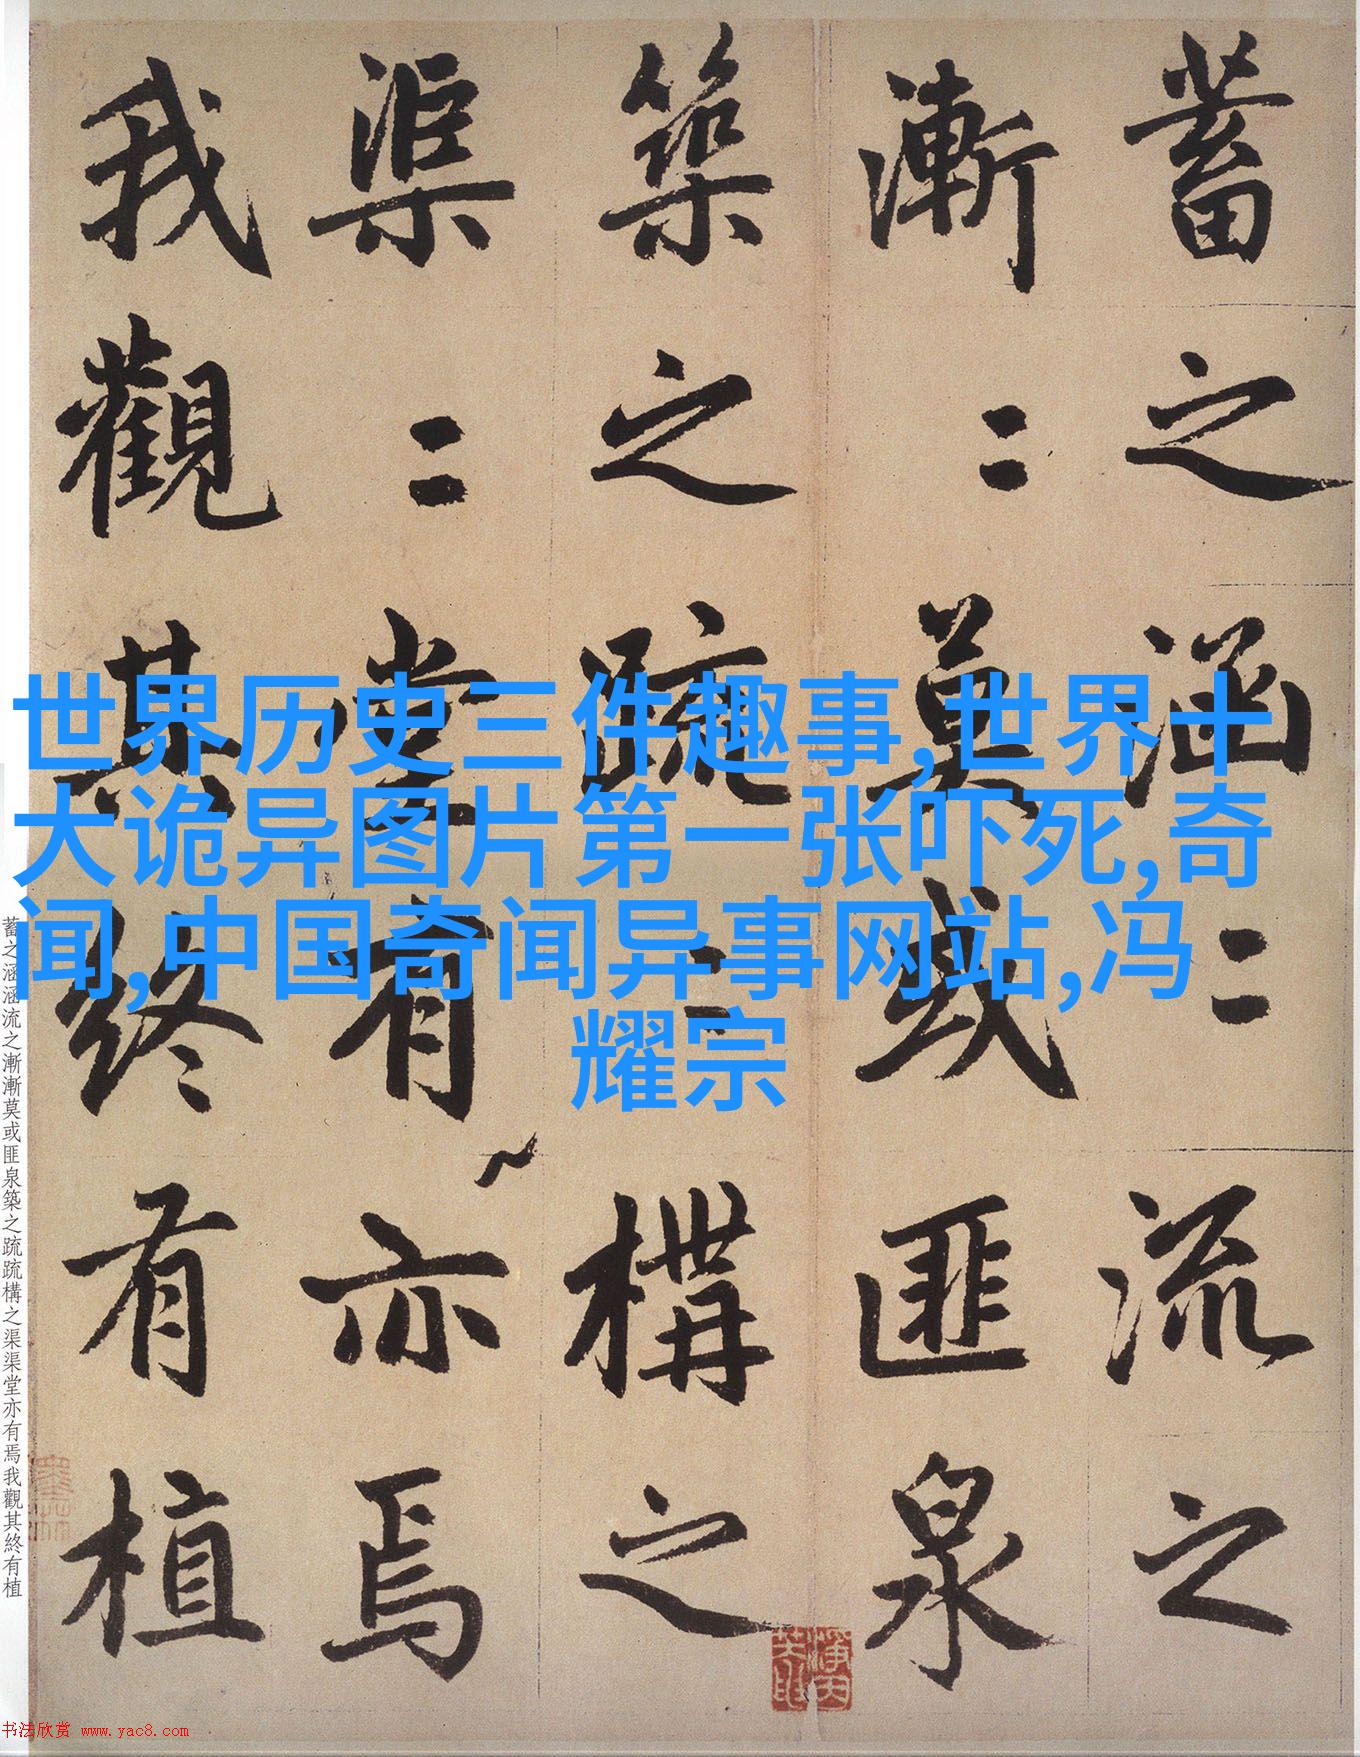 蓄之涵=流之
漸=莫或匪泉
築之疏=構之
渠=堂有亦焉
我觀其終有植
世界历史三件趣事,世界十
大诡异图片第一张吓死,奇
闻,中国奇闻异事网站,冯
耀宗
蓄之涵涵流之漸漸莫或匪泉築之疏疏構之渠渠堂亦有焉我觀其終有植
书法欣赏 www.yac8.com